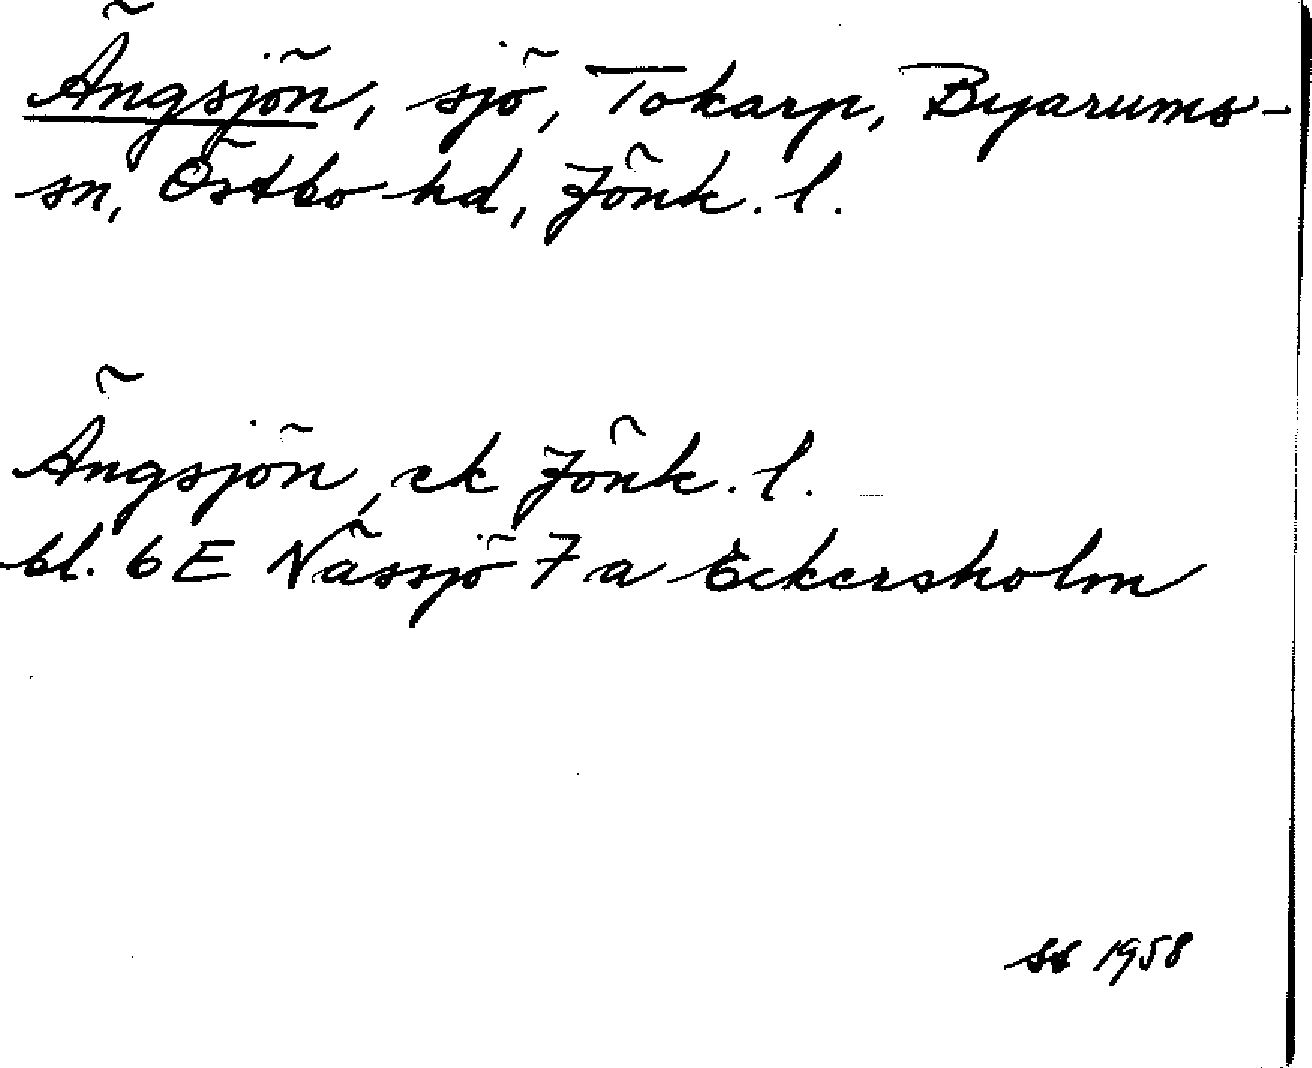 Ängsjön, sjö, Tokarp, Byarums-
sn, Östbo hd, Jönk. l.
Ängsjön, ek Jönk. l.
bl. 6E Nässjö 7a Eckersholm
ss 1958